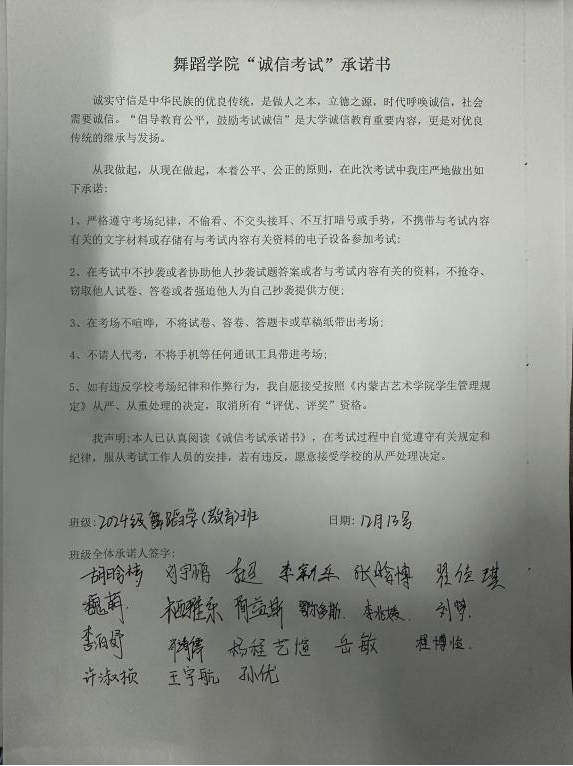 舞蹈学院“诚信考试”承诺书
诚实守信是中华民族的优良传统，是做人之本，立德之源，时代呼唤诚信，社会
需要诚信。“倡导教育公平，鼓励考试诚信”是大学诚信教育重要内容，更是对优良
传统的继承与发扬。
从我做起，从现在做起，本着公平、公正的原则，在此次考试中我庄严地做出如
下承诺:
1、严格遵守考场纪律，不偷看、不交头接耳、不互打暗号或手势，不携带与考试内容
有关的文字材料或存储有与考试内容有关资料的电子设备参加考试:
2、在考试中不抄袭或者协助他人抄袭试题答案或者与考试内容有关的资料，不抢夺、
窃取他人试卷、答卷或者强迫他人为自己抄袭提供方便;
3、在考场不喧哗，不将试卷、答卷、答题卡或草稿纸带出考场;
4、不请人代考，不将手机等任何通讯工具带进考场;
5、如有违反学校考场纪律和作弊行为，我自愿接受按照《内蒙古艺术学院学生管理规
定》从严、从重处理的决定，取消所有“评优、评奖”资格。
我声明:本人已认真阅读《诚信考试承诺书》，在考试过程中自觉遵守有关规定和
纪律，服从考试工作人员的安排，若有违反，愿意接受学校的从严处理决定。
班级:2024级舞蹈学(教育)班 日期: 12月13号
班级全体承诺人签字:
张晗博
魏萌 鄂尔多斯
杨程艺煊 岳敏 程博
许淑桢 王宇航 孙优